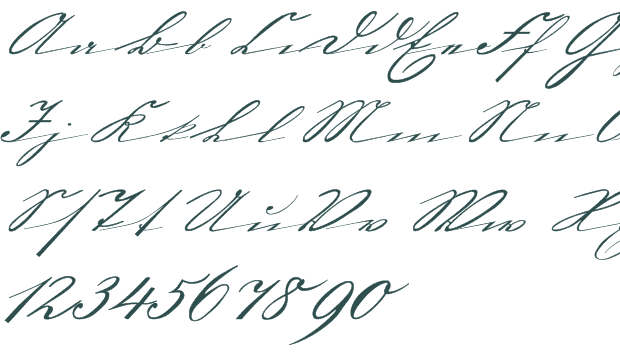 Aa Bb Cc Dd Ee Ff G
Jj Kk Ll Mm Nn O
Ss Tt Uu Vv Ww X
1234567890